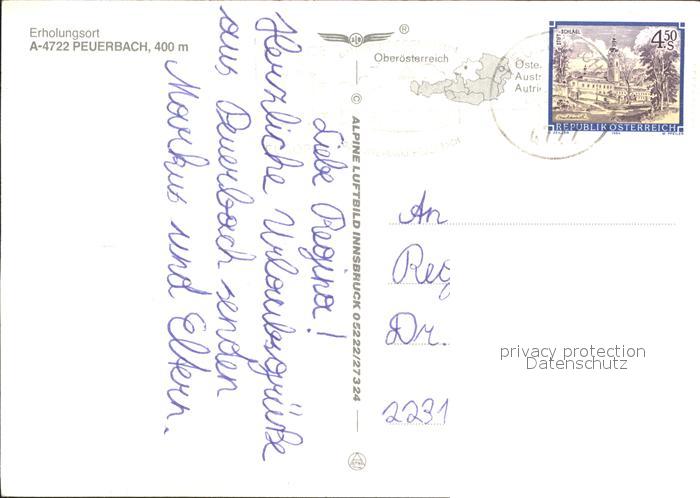 Erholungsort
A-4722 PEUERBACH, 400 m
Liebe Regina!
Herzliche Urlaubsgrüße
aus Peuerbach senden
Markus und Eltern.
®
Oberösterreich
Öste.
Austr
Autri
© ALPINE LUFTBILD INNSBRUCK 05222/27324
STIFT SCHLÄGL
4.50
S
REPUBLIK ÖSTERREICH
An
Reg
Dr.
2231
privacy protection
Datenschutz